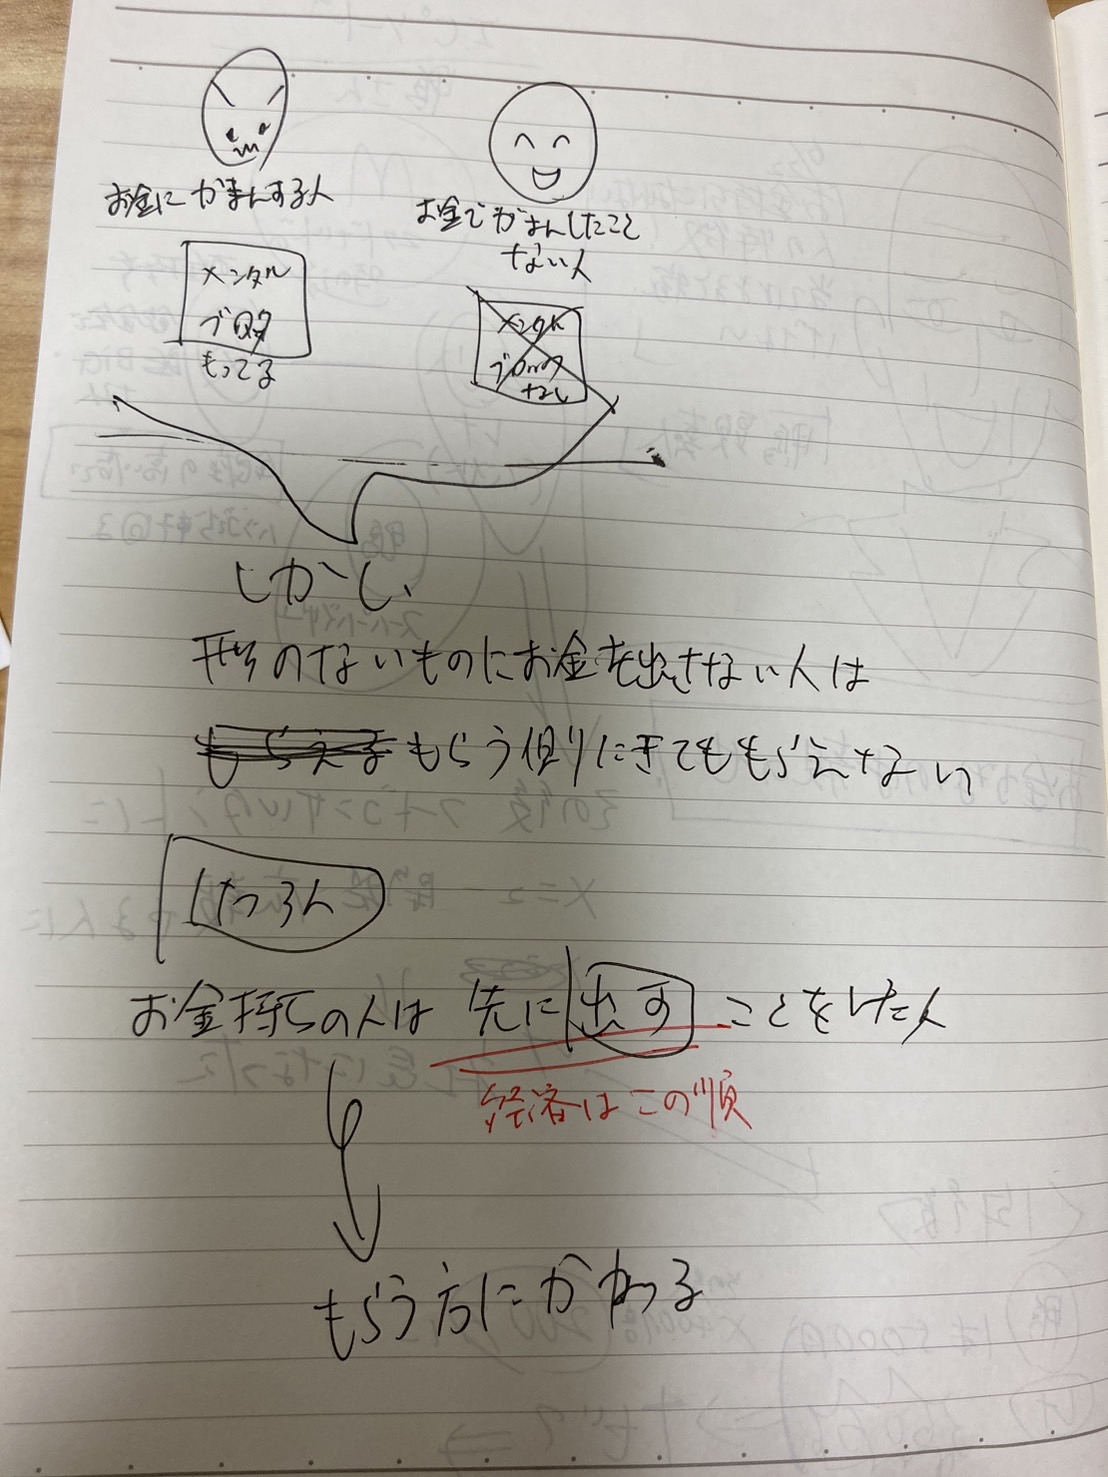 お金にがまんする人
お金でがまんしたこと
ない人
メンタル
ブロック
もってる
メンタル
ブロック
なし
しかし、
形のないものにお金を出さない人は
もらえる もらう側にきてももらえない
けつろん
お金持ちの人は 先に出す ことをした人
経済はこの順
もらう方にかわる